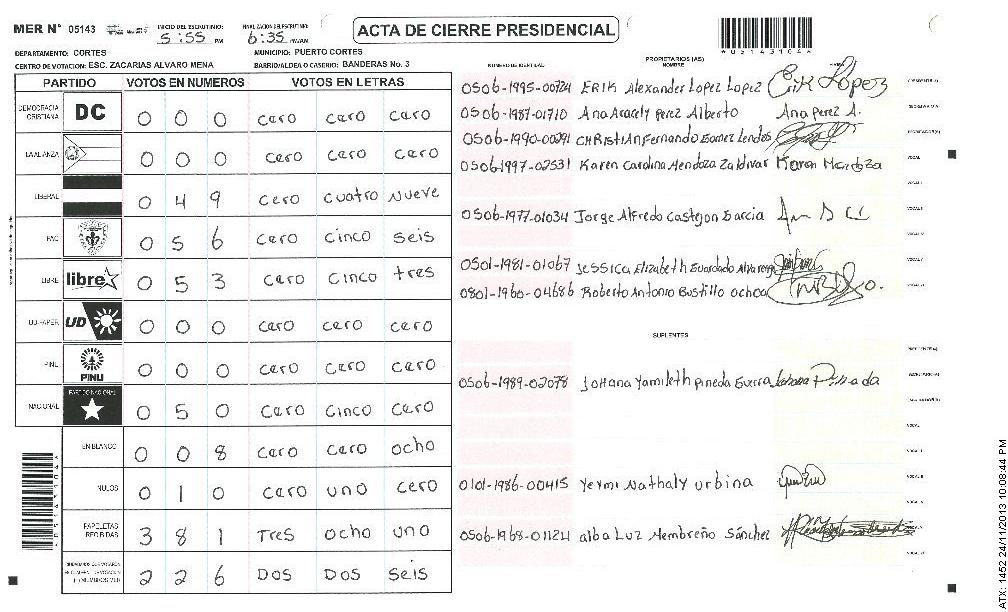 MER N° 05143
INICIO DEL ESCRUTINIO:
5:55 PM
FINALIZACION DEL ESCRUTINIO:
6:35 PM/AM
ACTA DE CIERRE PRESIDENCIAL
05143104
DEPARTAMENTO: CORTES
MUNICIPIO: PUERTO CORTES
CENTRO DE VOTACION: ESC. ZACARIAS ALVARO MENA
BARRIO/ALDEA O CASERIO: BANDERAS No. 3
PARTIDO VOTOS EN NUMEROS VOTOS EN LETRAS
DEMOCRACIA CRISTIANA DC 0 0 0 cero cero cero
LA ALIANZA 0 0 0 cero cero cero
LIBERAL 0 4 9 cero cuatro nueve
PAC 0 5 6 cero cinco seis
LIBRE libre 0 5 3 cero cinco tres
UD-FAPER UD 0 0 0 cero cero cero
PINU PINU 0 0 0 cero cero cero
NACIONAL PARTIDO NACIONAL 0 5 0 cero cinco cero
EN BLANCO 0 0 8 cero cero ocho
NULOS 0 1 0 cero uno cero
PAPELETAS RECIBIDAS 3 8 1 Tres ocho uno
2 2 6 DOS DOS seis
NUMERO DE IDENTIDAD
PROPIETARIOS (AS)
NOMBRE
0506-1995-00724 ERIK Alexander Lopez Lopez Erik Lopez
0506-1987-01710 Ana Aracely Perez Alberto Ana Perez A.
0506-1990-00291 CHRISTIAN Fernando Gomez Lendes
0506-1997-02531 Karen Carolina Mendoza Zaldivar Karen Mendoza
0506-1977-01034 Jorge Alfredo Castejon Garcia
0501-1981-01067 Jessica Elizabeth Guardado Alvarenga
0801-1966-04686 Roberto Antonio Bustillo Ochoa
SUPLENTES
0506-1989-02078 Johana Yamileth Pineda Guerra
0101-1986-00415 Yeymi Nathaly urbina
0506-1968-01124 alba Luz Membreño Sánchez
ATX: 1452 24/11/2013 10:08:44 PM